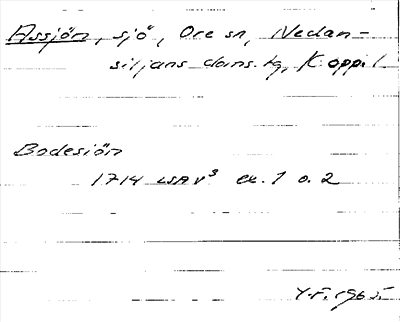 Assjön, sjö, Ore sn, Nedan-
siljans doms.tg, Kopp. l.
Bodesiön
1714 LSA V³ ex. 1 o. 2
Y.F. 1965.